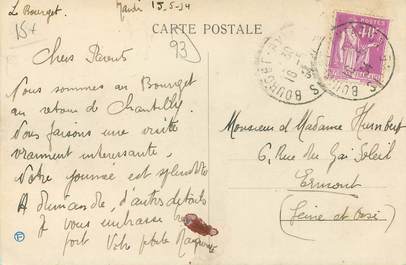 Le Bourget.
Mardi 15-5-34
15+
CARTE POSTALE
93
Chers Parents
Nous sommes au Bourget
au retour de Chantilly.
Nous faisons une visite
vraiment intéressante.
Notre journée est splendide
A dimanche, d'autres détails
Je vous embrasse
fort Votre petite
Monsieur et Madame Humbert
6, Rue du Gai Soleil
Ermont
(Seine et Oise)
POSTES
40c
BOURGET
F